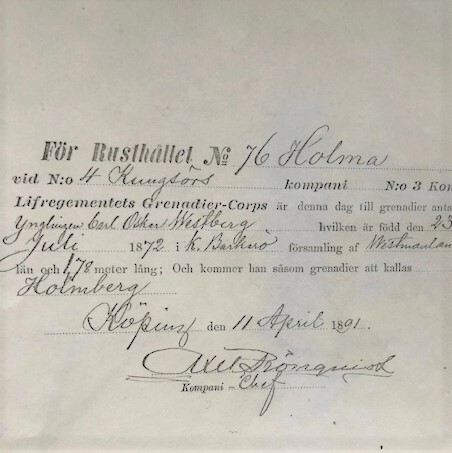 För Rusthållet No 76 Holma
vid N:o 4 Kungsörs kompani N:o 3 Kon
Lifregementets Grenadier-Corps är denna dag till grenadier anta
Ynglingen Carl Oskar Westberg hvilken är född den 23
Juli 1872 i K. Barkarö församling af Westmanlan
län och 1,78 meter lång; Och kommer han såsom grenadier att kallas
Holmberg
Köping den 11 April 1891.
Axel Rönquist
Kompani - Chef